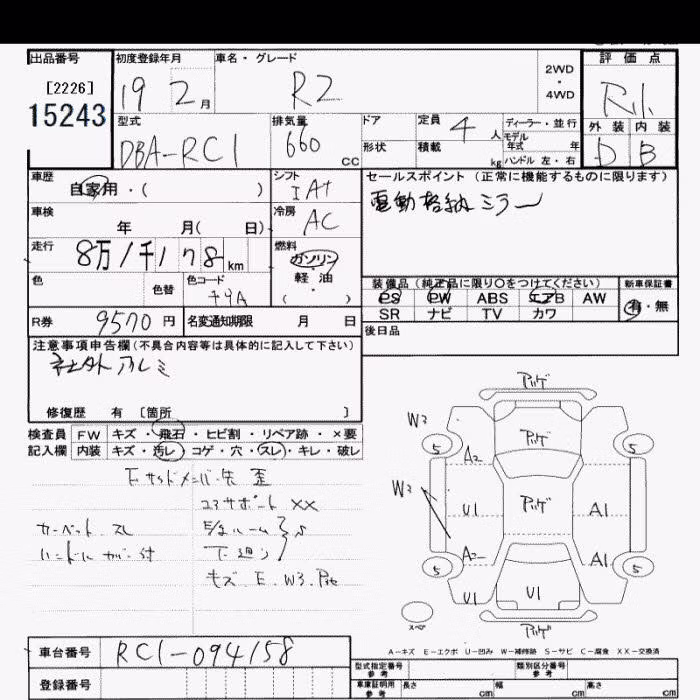 出品番号 初度登録年月 車名・グレード 評価点
[2226] 19 2月 R2 2WD・4WD
15243
型式 排気量 ドア 定員 4人 ディーラー・並行 外装 内装
DBA-RC1 660cc 形状 積載 kg モデル年式 年 D B
ハンドル 左・右
車歴 シフト セールスポイント (正常に機能するものに限ります)
自家用・( ) IAT 電動格納ミラー
車検 年 月( 日) 冷房 AC
走行 8万1千178km 燃料 ガソリン 軽・油 ( )
色 色替 色コード
装備品 (純正品に限り〇をつけてください) 新車保証書
PS PW ABS エアB AW 有・無
SR ナビ TV カワ
R券 9570円 名変通知期限 月 日 後日品
注意事項申告欄(不具合内容等は具体的に記入して下さい)
社外アルミ
修復歴 有 〔箇所 〕
検査員 FW キズ・飛石・ヒビ割・リペア跡・×要
記入欄 内装 キズ・汚レ コゲ・穴・スレ・キレ・破レ
Fサイドメンバー先 歪
コアサポート XX
カーペット スレ
ハンドルカバー付
下廻り
キズ E W3
W3 A2 U1 W3 A2 U1 U1 A1 A1
5 5 5 5
スペア
A-キズ E-エクボ U-凹み W-補修跡 S-サビ C-腐食 XX-交換済
車台番号 RC1-094158
登録番号
型式指定番号 参考 類別区分番号 参考
車庫証明用 参考 長さ cm 幅 cm 高さ cm